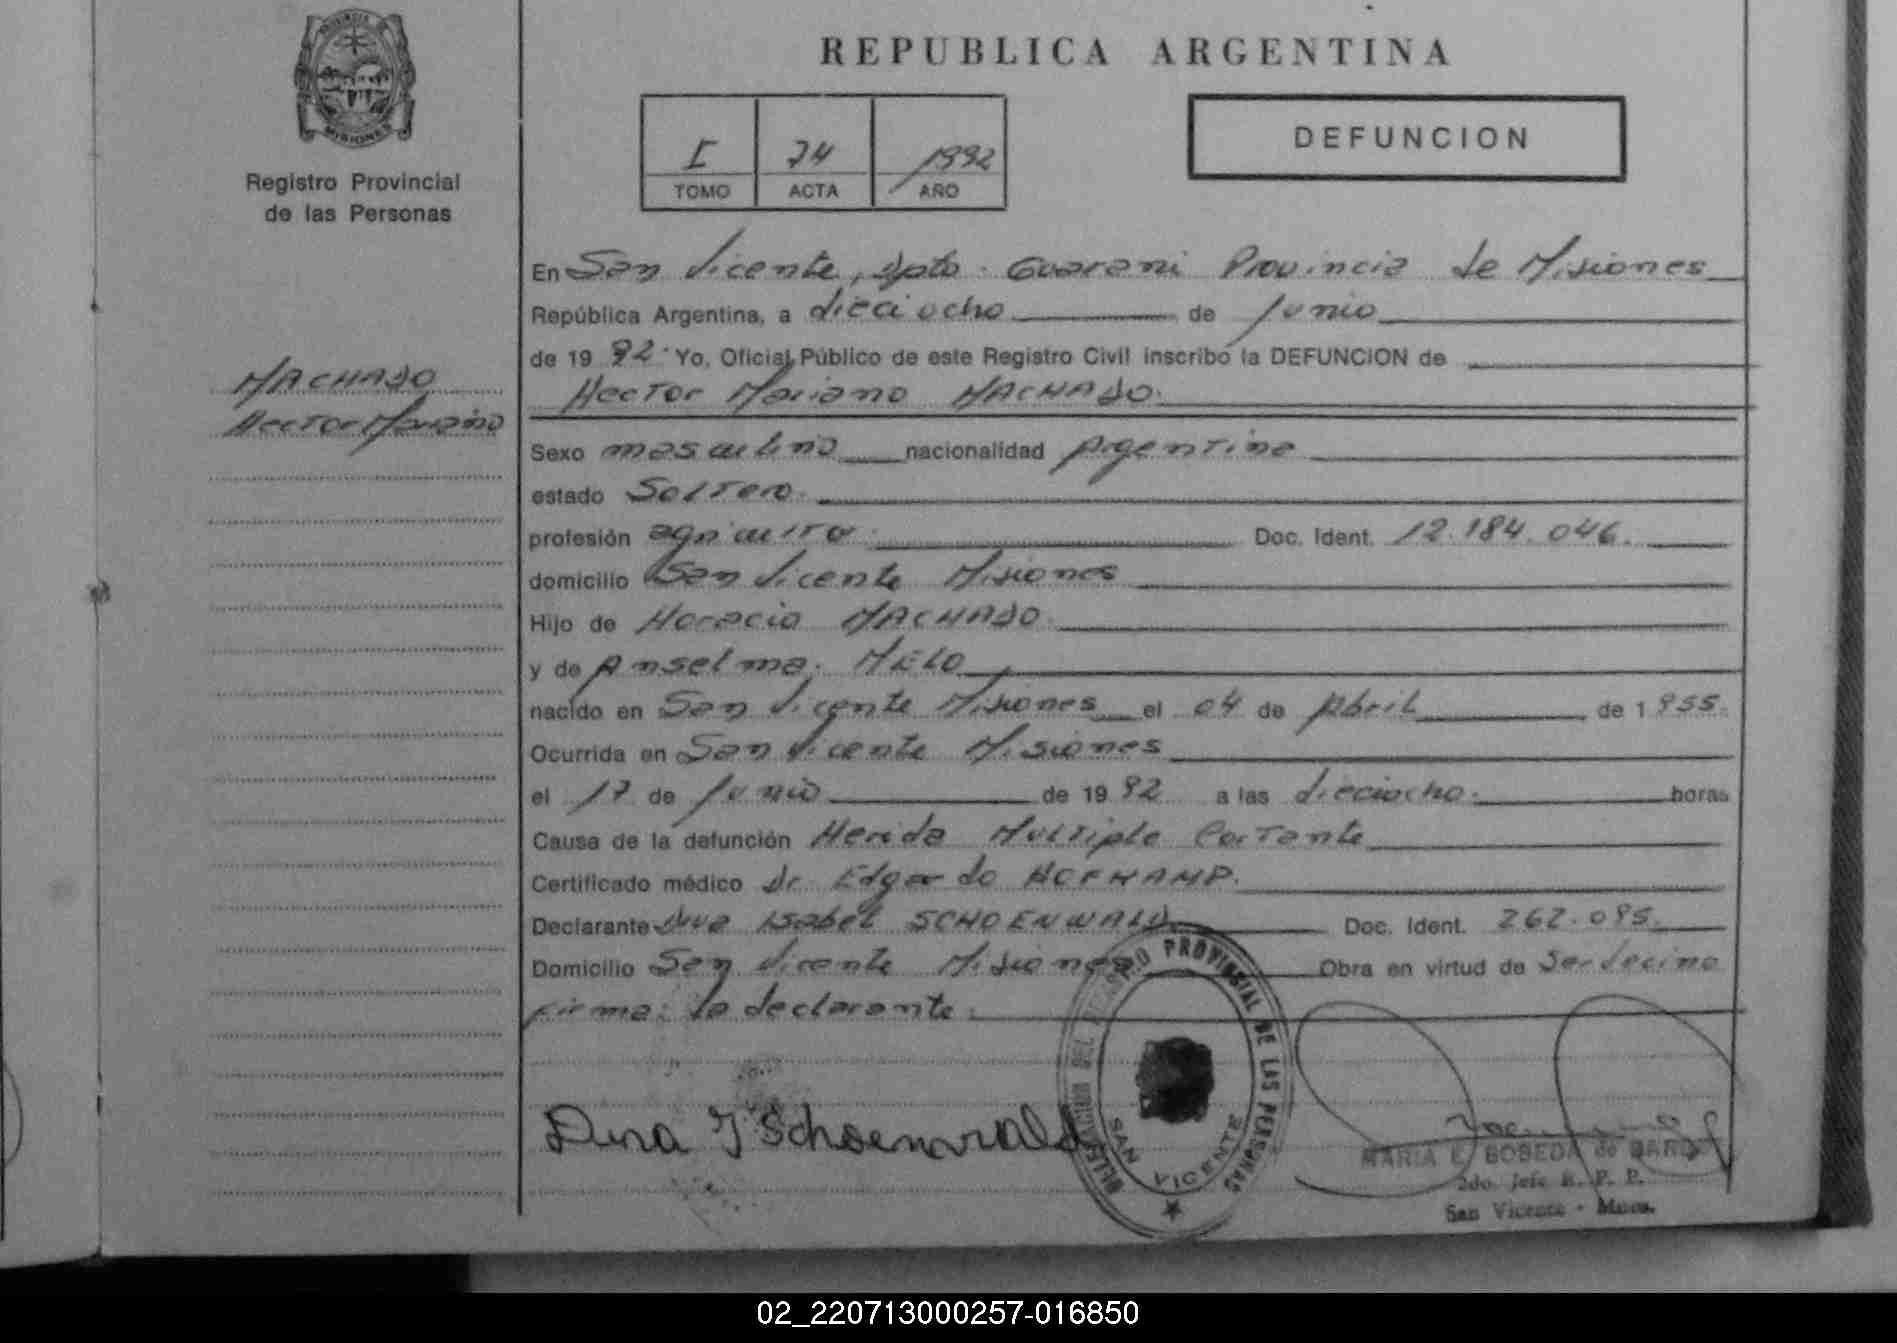 PROVINCIA DE
MISIONES
Registro Provincial
de las Personas
MACHADO
Hector Mariano
REPUBLICA ARGENTINA
I 74 1992
TOMO ACTA AÑO
DEFUNCION
En San Vicente, Dpto. Guarani Provincia de Misiones
República Argentina, a dieciocho de Junio
de 1992 Yo, Oficial Público de este Registro Civil inscribo la DEFUNCION de
Hector Mariano MACHADO.
Sexo masculino nacionalidad Argentina
estado Soltero.
profesión agricultor. Doc. Ident. 12.184.046.
domicilio San Vicente Misiones
Hijo de Horacio MACHADO.
y de Anselma. MELO
nacido en San Vicente Misiones el 04 de Abril de 1955.
Ocurrida en San Vicente Misiones
el 17 de Junio de 1992 a las dieciocho. horas
Causa de la defunción Herida Multiple Cortante
Certificado médico Dr. Edgardo
Declarante Isabel SCHOENWALD Doc. Ident. 262.095.
Domicilio San Vicente Misiones Obra en virtud de Ser vecino
Firma: la declarante.
Dina I Schoenwald
DELEGACION DEL REGISTRO PROVINCIAL DE LAS PERSONAS
SAN VICENTE
MARIA E. BOBEDA de
2do. Jefe R. P. P.
San Vicente - Mnes.
02_220713000257-016850